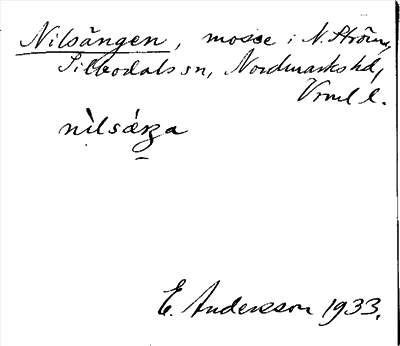 Nilsängen, mosse i N. Ström,
Silbodals sn, Nordmarks hd,
Vrml l.
nìlsǽŋa
E. Andersson 1933.